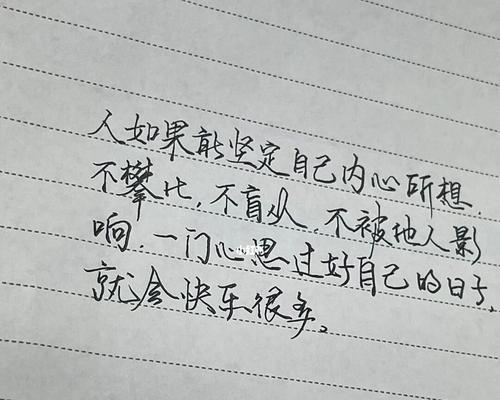 人如果能坚定自己内心所想，
不攀比，不盲从，不被他人影
响，一门心思过好自己的日子，
就会快乐很多。